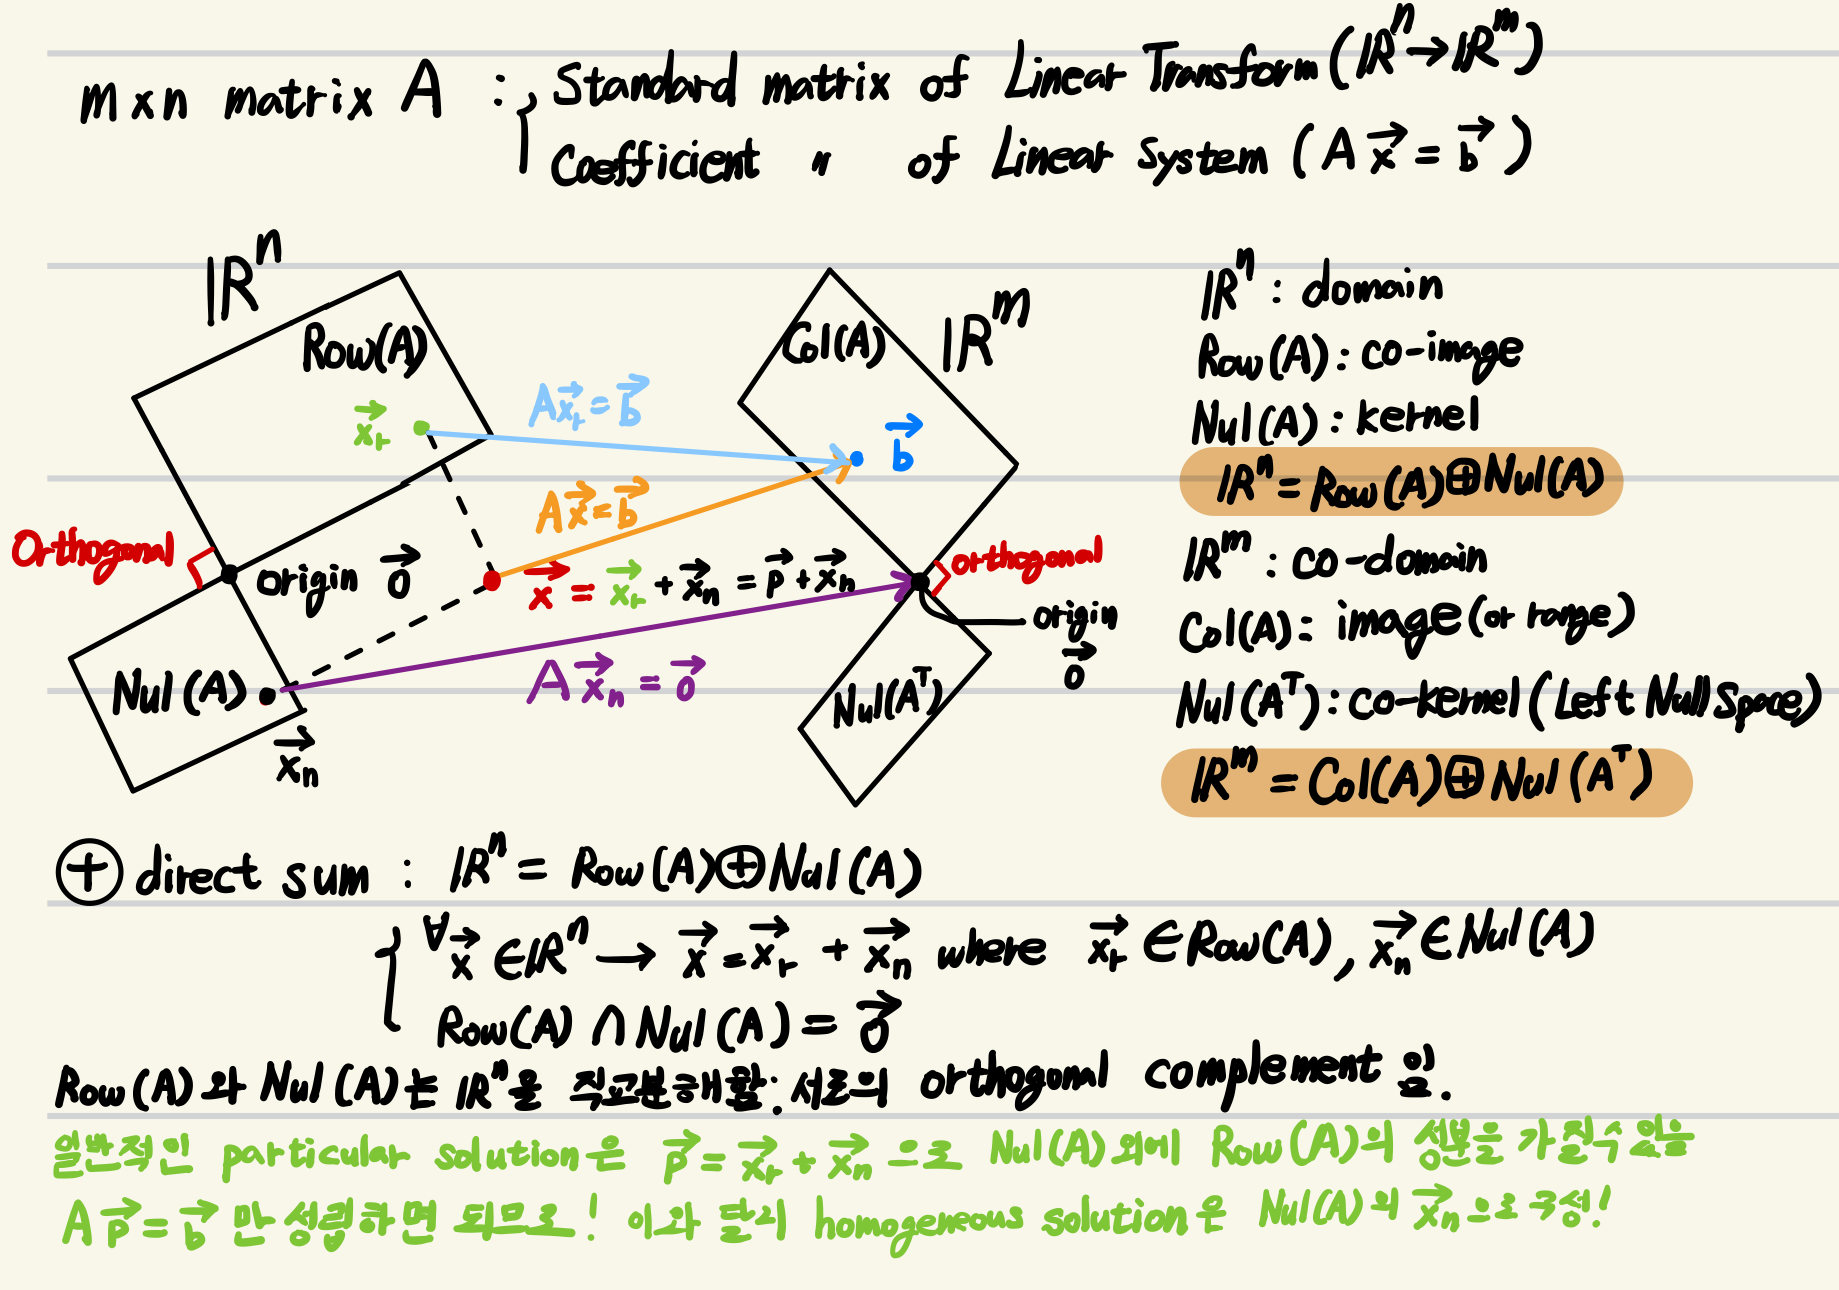 m x n matrix A : { Standard matrix of Linear Transform (ℝⁿ→ℝᵐ)
Coefficient 〃 of Linear System (A x⃗ = b⃗)
ℝⁿ
Row(A)
x⃗ᵣ
Ax⃗ᵣ = b⃗
Ax⃗ = b⃗
Orthogonal
origin 0⃗
x⃗ = x⃗ᵣ + x⃗ₙ = p⃗ + x⃗ₙ
Nul(A)
x⃗ₙ
A x⃗ₙ = 0⃗
Col(A)
ℝᵐ
b⃗
orthogonal
origin
0⃗
Nul(Aᵀ)
ℝⁿ : domain
Row(A) : co-image
Nul(A) : kernel
ℝⁿ = Row(A)⊕Nul(A)
ℝᵐ : co-domain
Col(A) : image (or range)
Nul(Aᵀ) : co-kernel (Left Null Space)
ℝᵐ = Col(A)⊕Nul(Aᵀ)
⊕ direct sum : ℝⁿ = Row(A)⊕Nul(A)
{ ∀x⃗ ∈ℝⁿ → x⃗ = x⃗ᵣ + x⃗ₙ where x⃗ᵣ ∈ Row(A), x⃗ₙ ∈ Nul(A)
Row(A) ∩ Nul(A) = 0⃗
Row(A)와 Nul(A)는 ℝⁿ을 직교분해함. 서로의 orthogonal complement 임.
일반적인 particular solution은 p⃗ = x⃗ᵣ + x⃗ₙ 으로 Nul(A)외에 Row(A)의 성분을 가질수 있음
A p⃗ = b⃗ 만 성립하면 되므로! 이와 달리 homogeneous solution은 Nul(A)의 x⃗ₙ으로 구성!